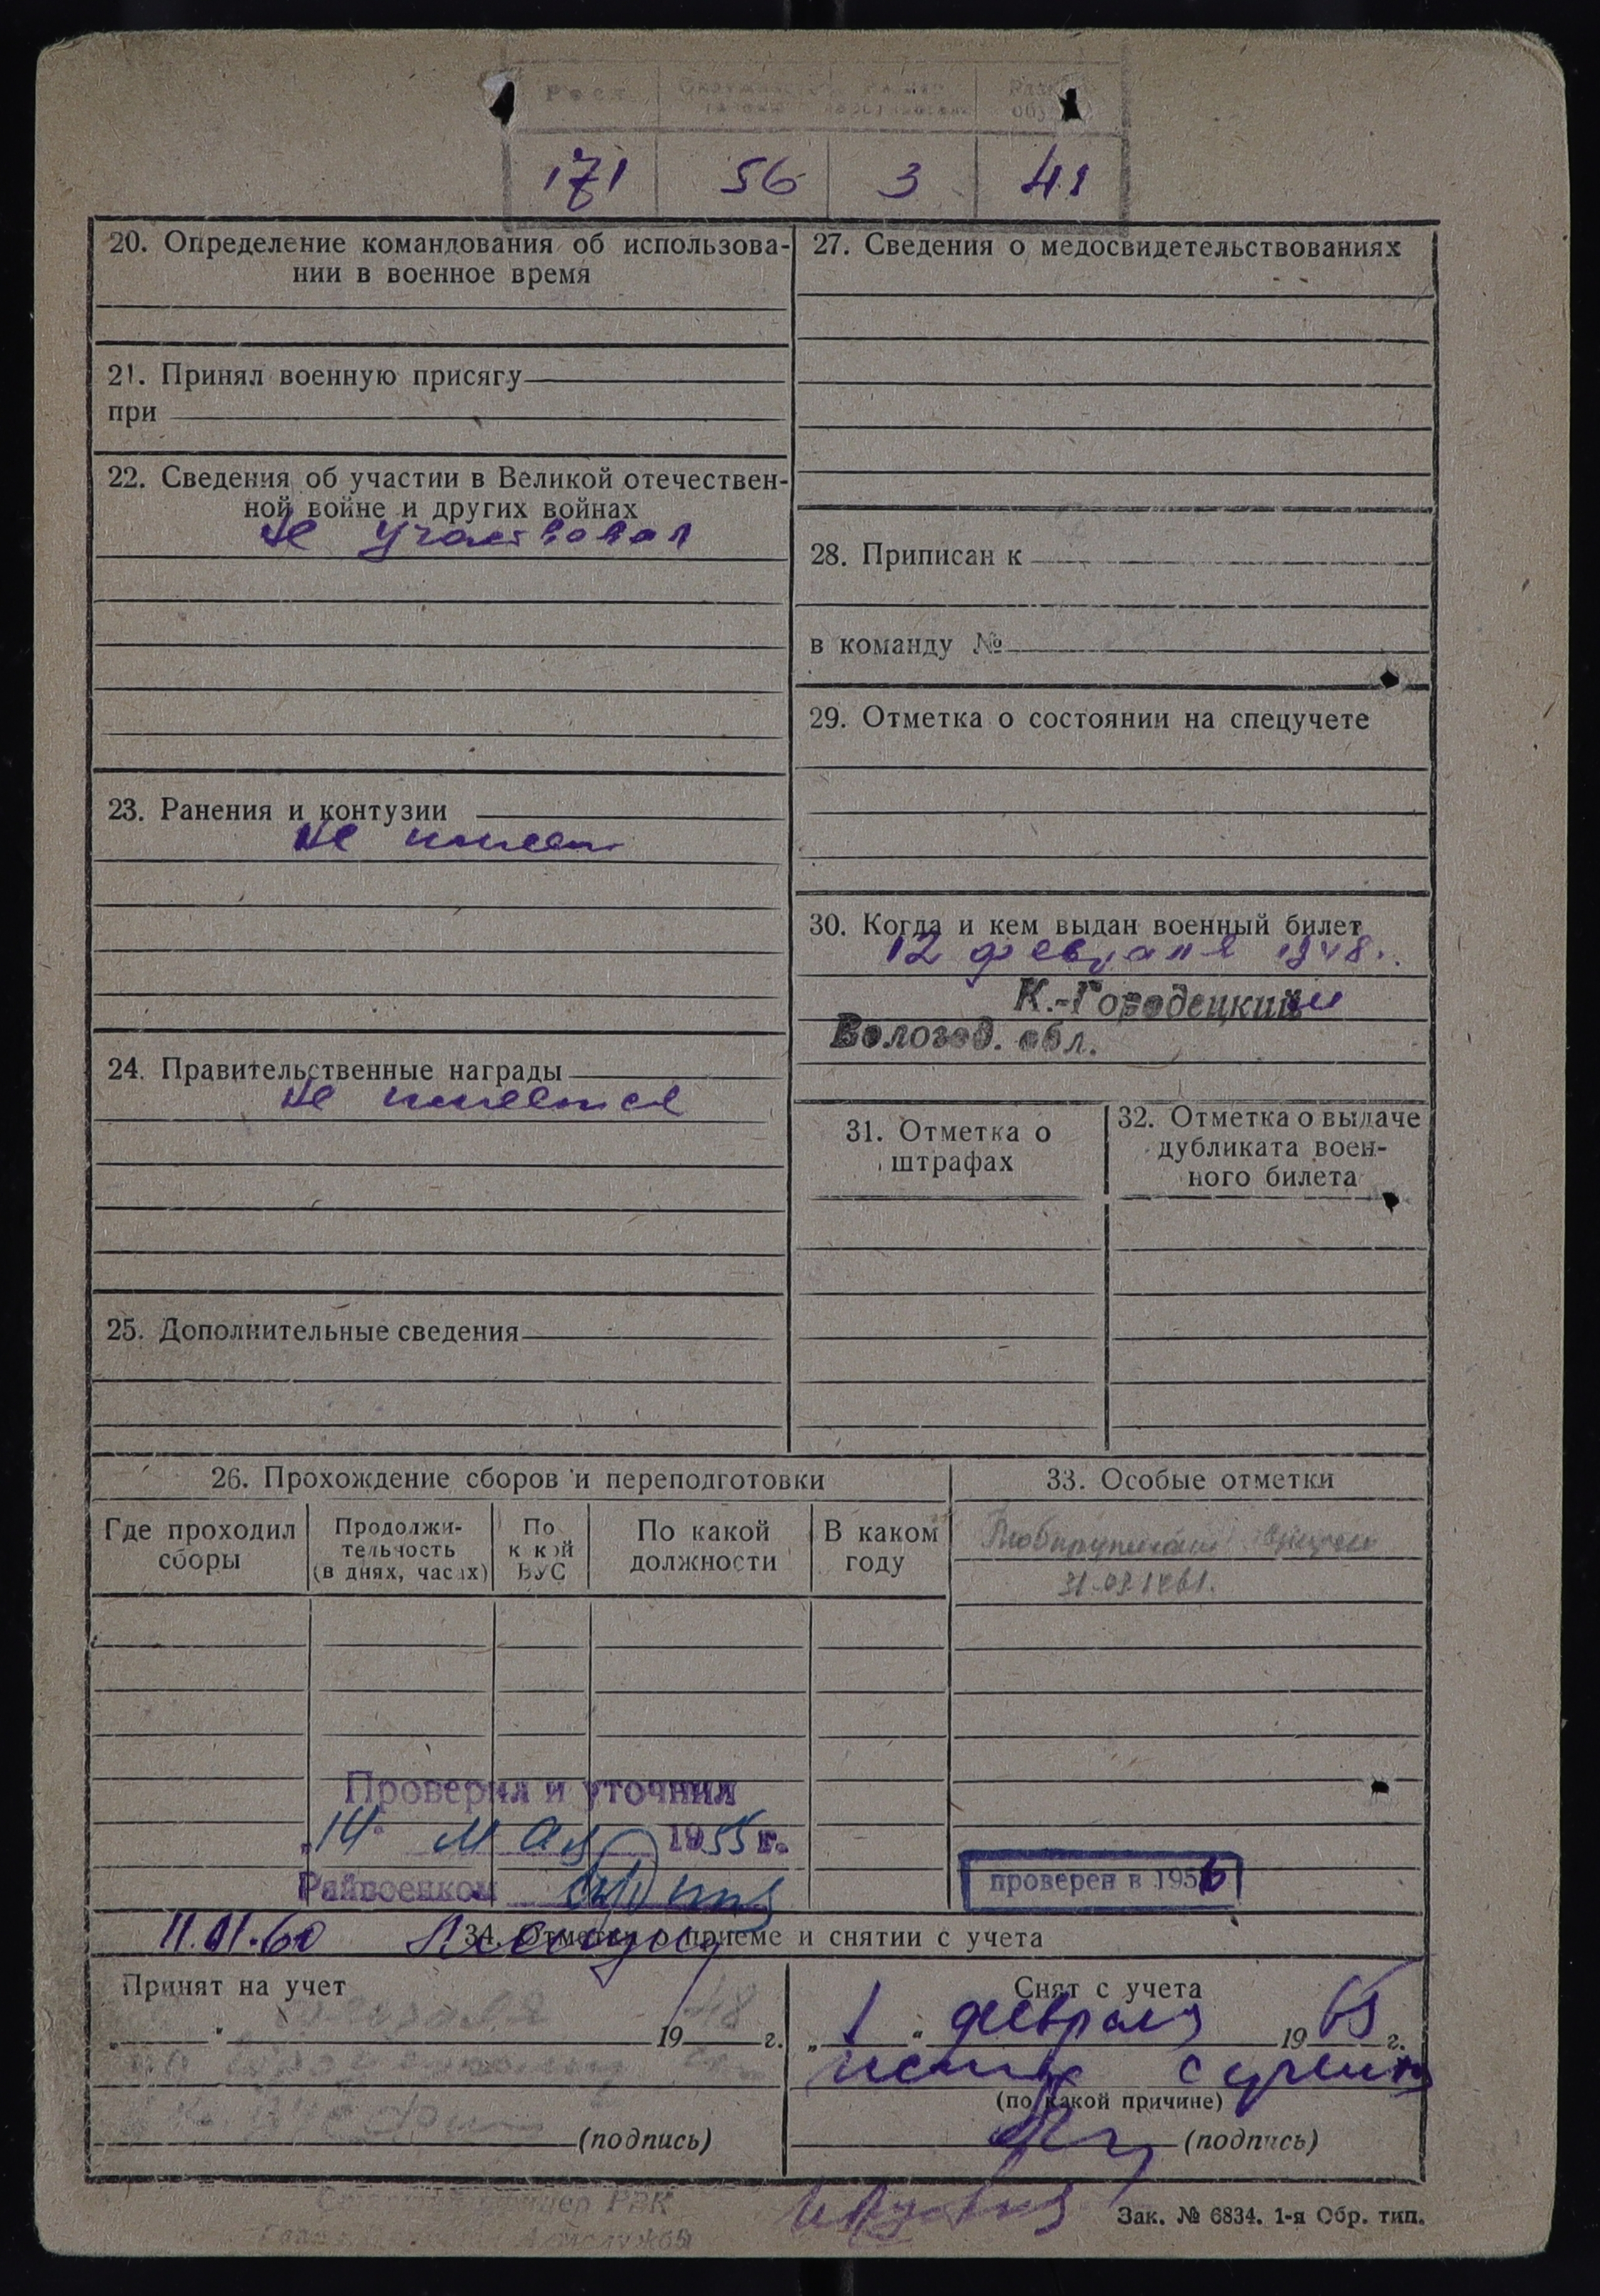 Рост
171 56 3 41
20. Определение командования об использова-
нии в военное время
21. Принял военную присягу
при
22. Сведения об участии в Великой отечествен-
ной войне и других войнах
не участвовал
23. Ранения и контузии
не имеет
24. Правительственные награды
не имеется
25. Дополнительные сведения
27. Сведения о медосвидетельствованиях
28. Приписан к
в команду №
29. Отметка о состоянии на спецучете
30. Когда и кем выдан военный билет
12 февраля 1948.
К.-Городецкий
Вологод. обл.
31. Отметка о
штрафах
32. Отметка о выдаче
дубликата воен-
ного билета
26. Прохождение сборов и переподготовки
Где проходил
сборы
Продолжи-
тельность
(в днях, часах)
По
какой
ВУС
По какой
должности
В каком
году
33. Особые отметки
Проверил и уточнил
"14" мая 1955 г.
Райвоенком
проверен в 1956
11.01.60
34. Отметки о приеме и снятии с учета
Принят на учет
„ " 19 48 г.
(подпись)
Снят с учета
„ 1 " февраля 19 65 г.
искл с учета
(по какой причине)
(подпись)
Зак. № 6834. 1-я Обр. тип.